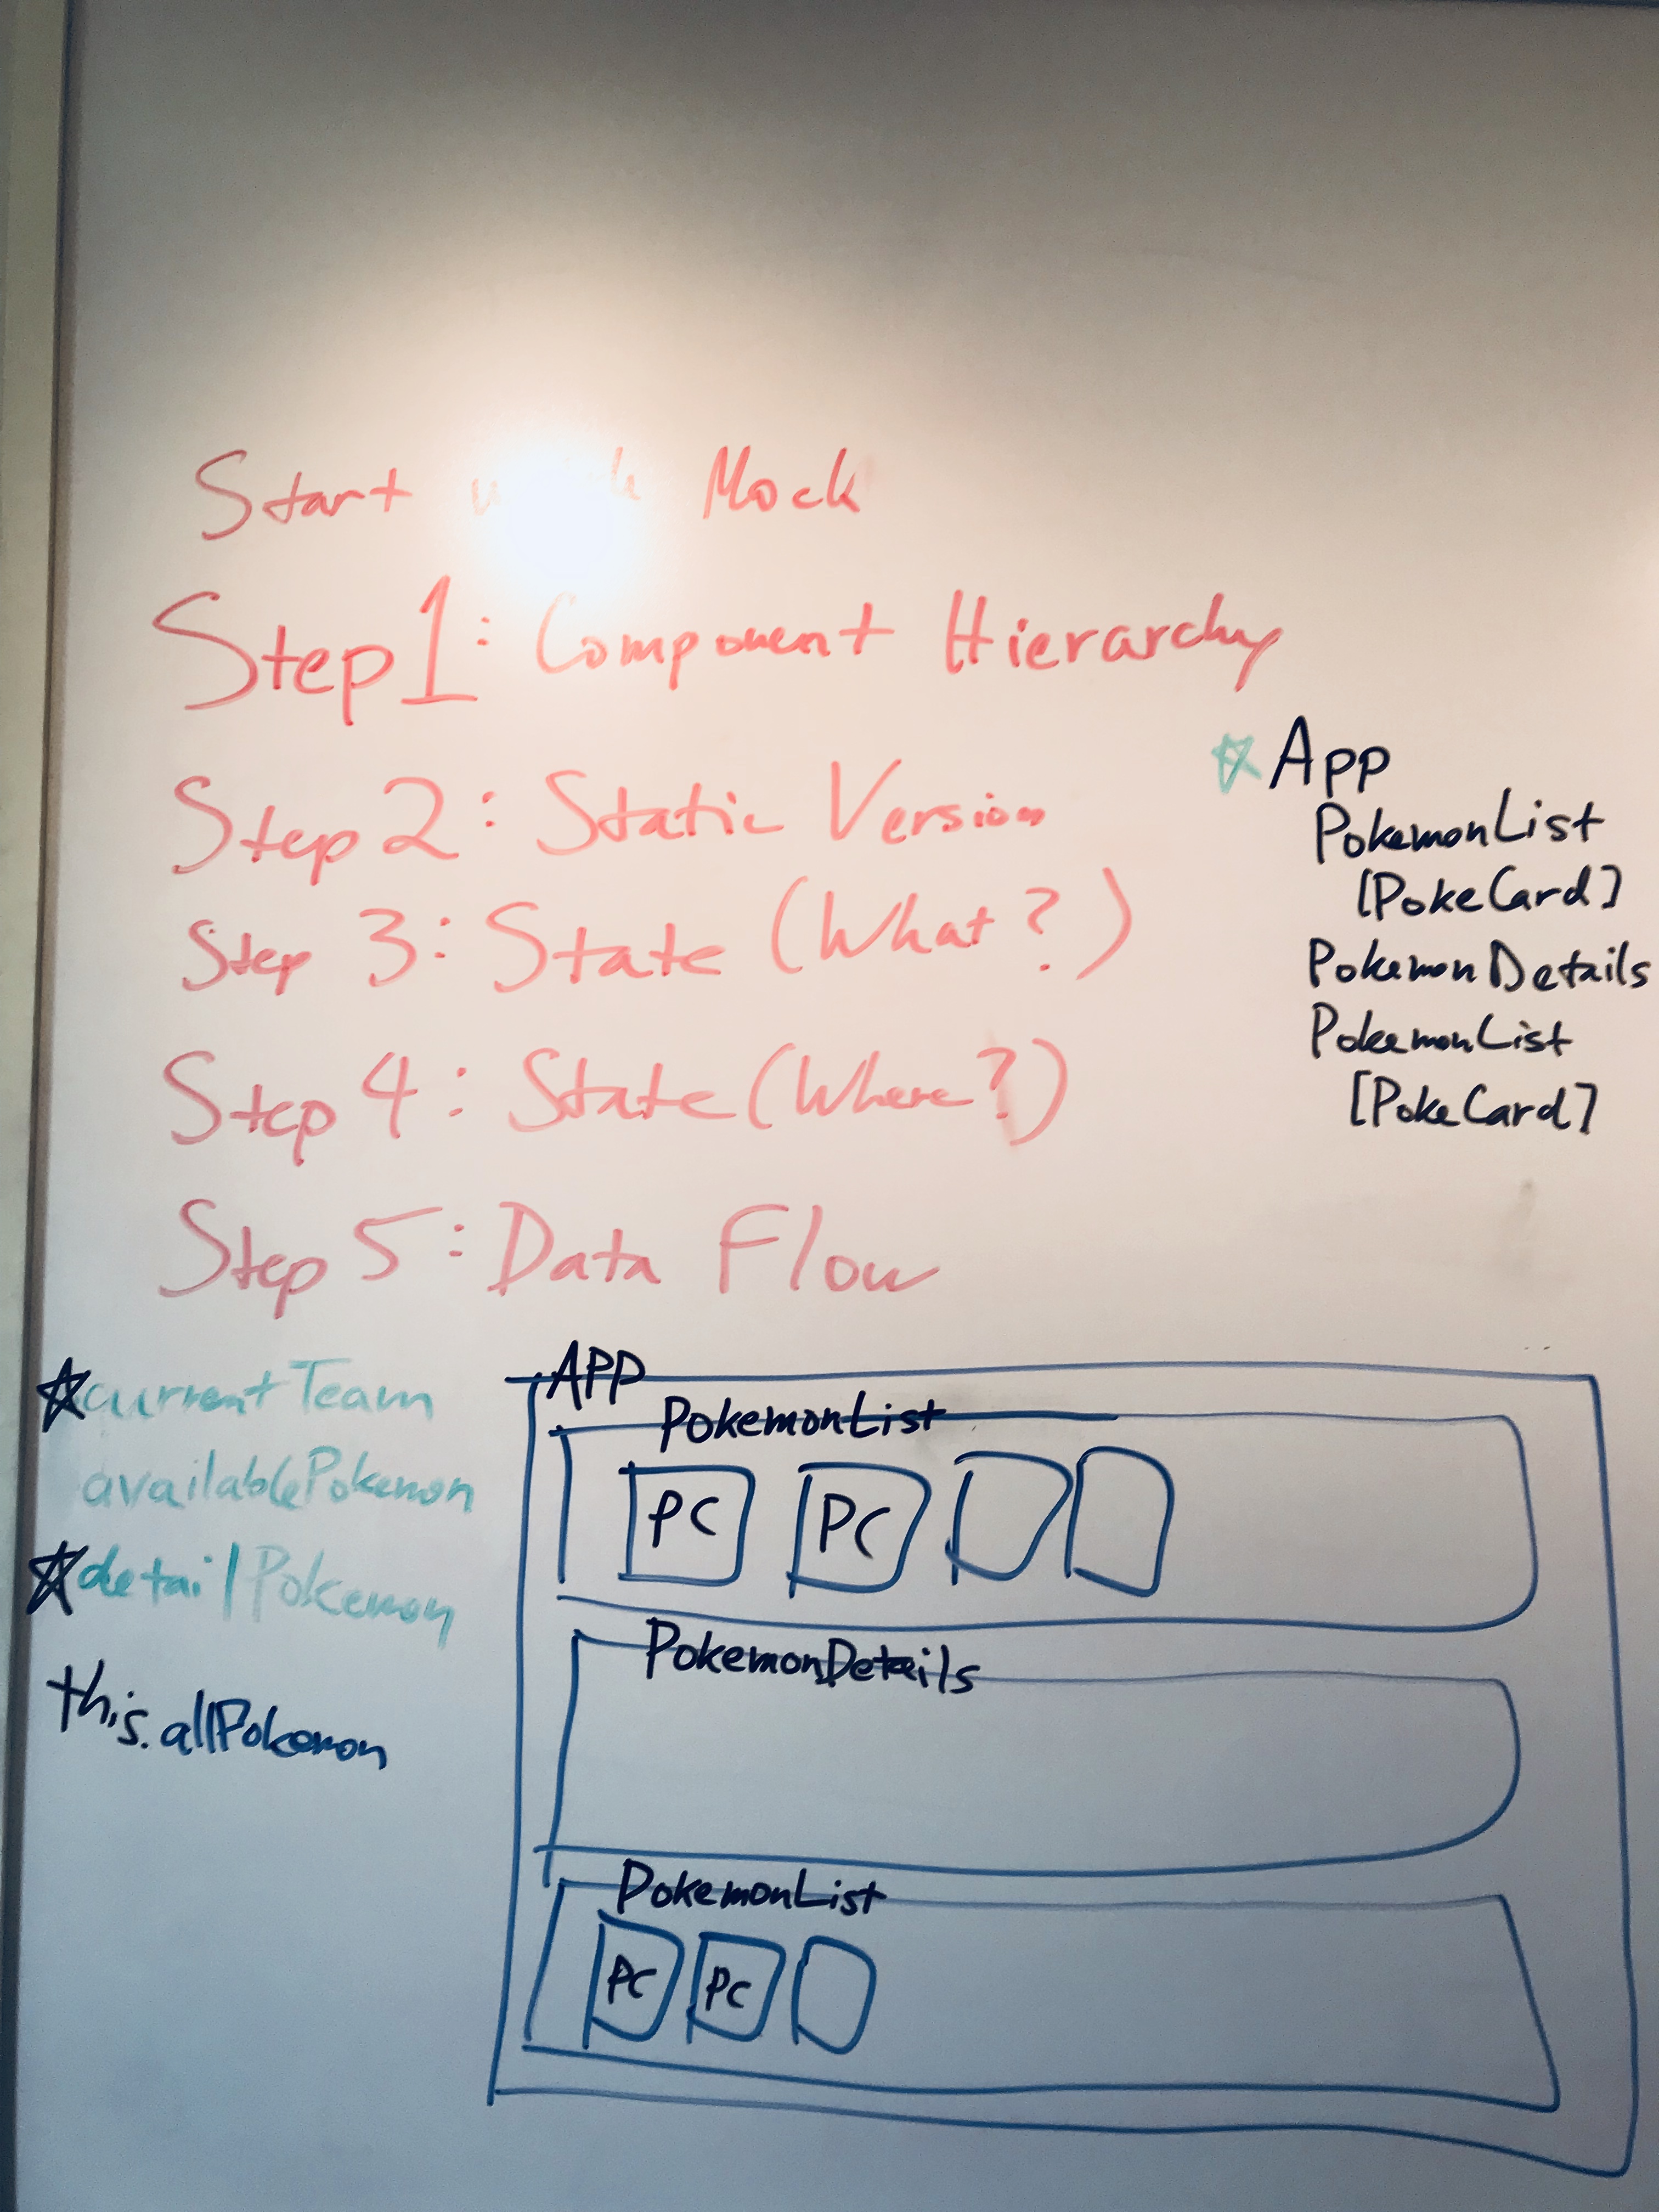 Start Mock
Step 1: Component Hierarchy
Step 2: Static Version
Step 3: State (What?)
Step 4: State (Where?)
Step 5: Data Flow
App
PokemonList
[PokeCard]
PokemonDetails
PokemonList
[PokeCard]
currentTeam
availablePokemon
detailPokemon
this.allPokemon
APP
PokemonList
PC PC
PokemonDetails
PokemonList
PC PC